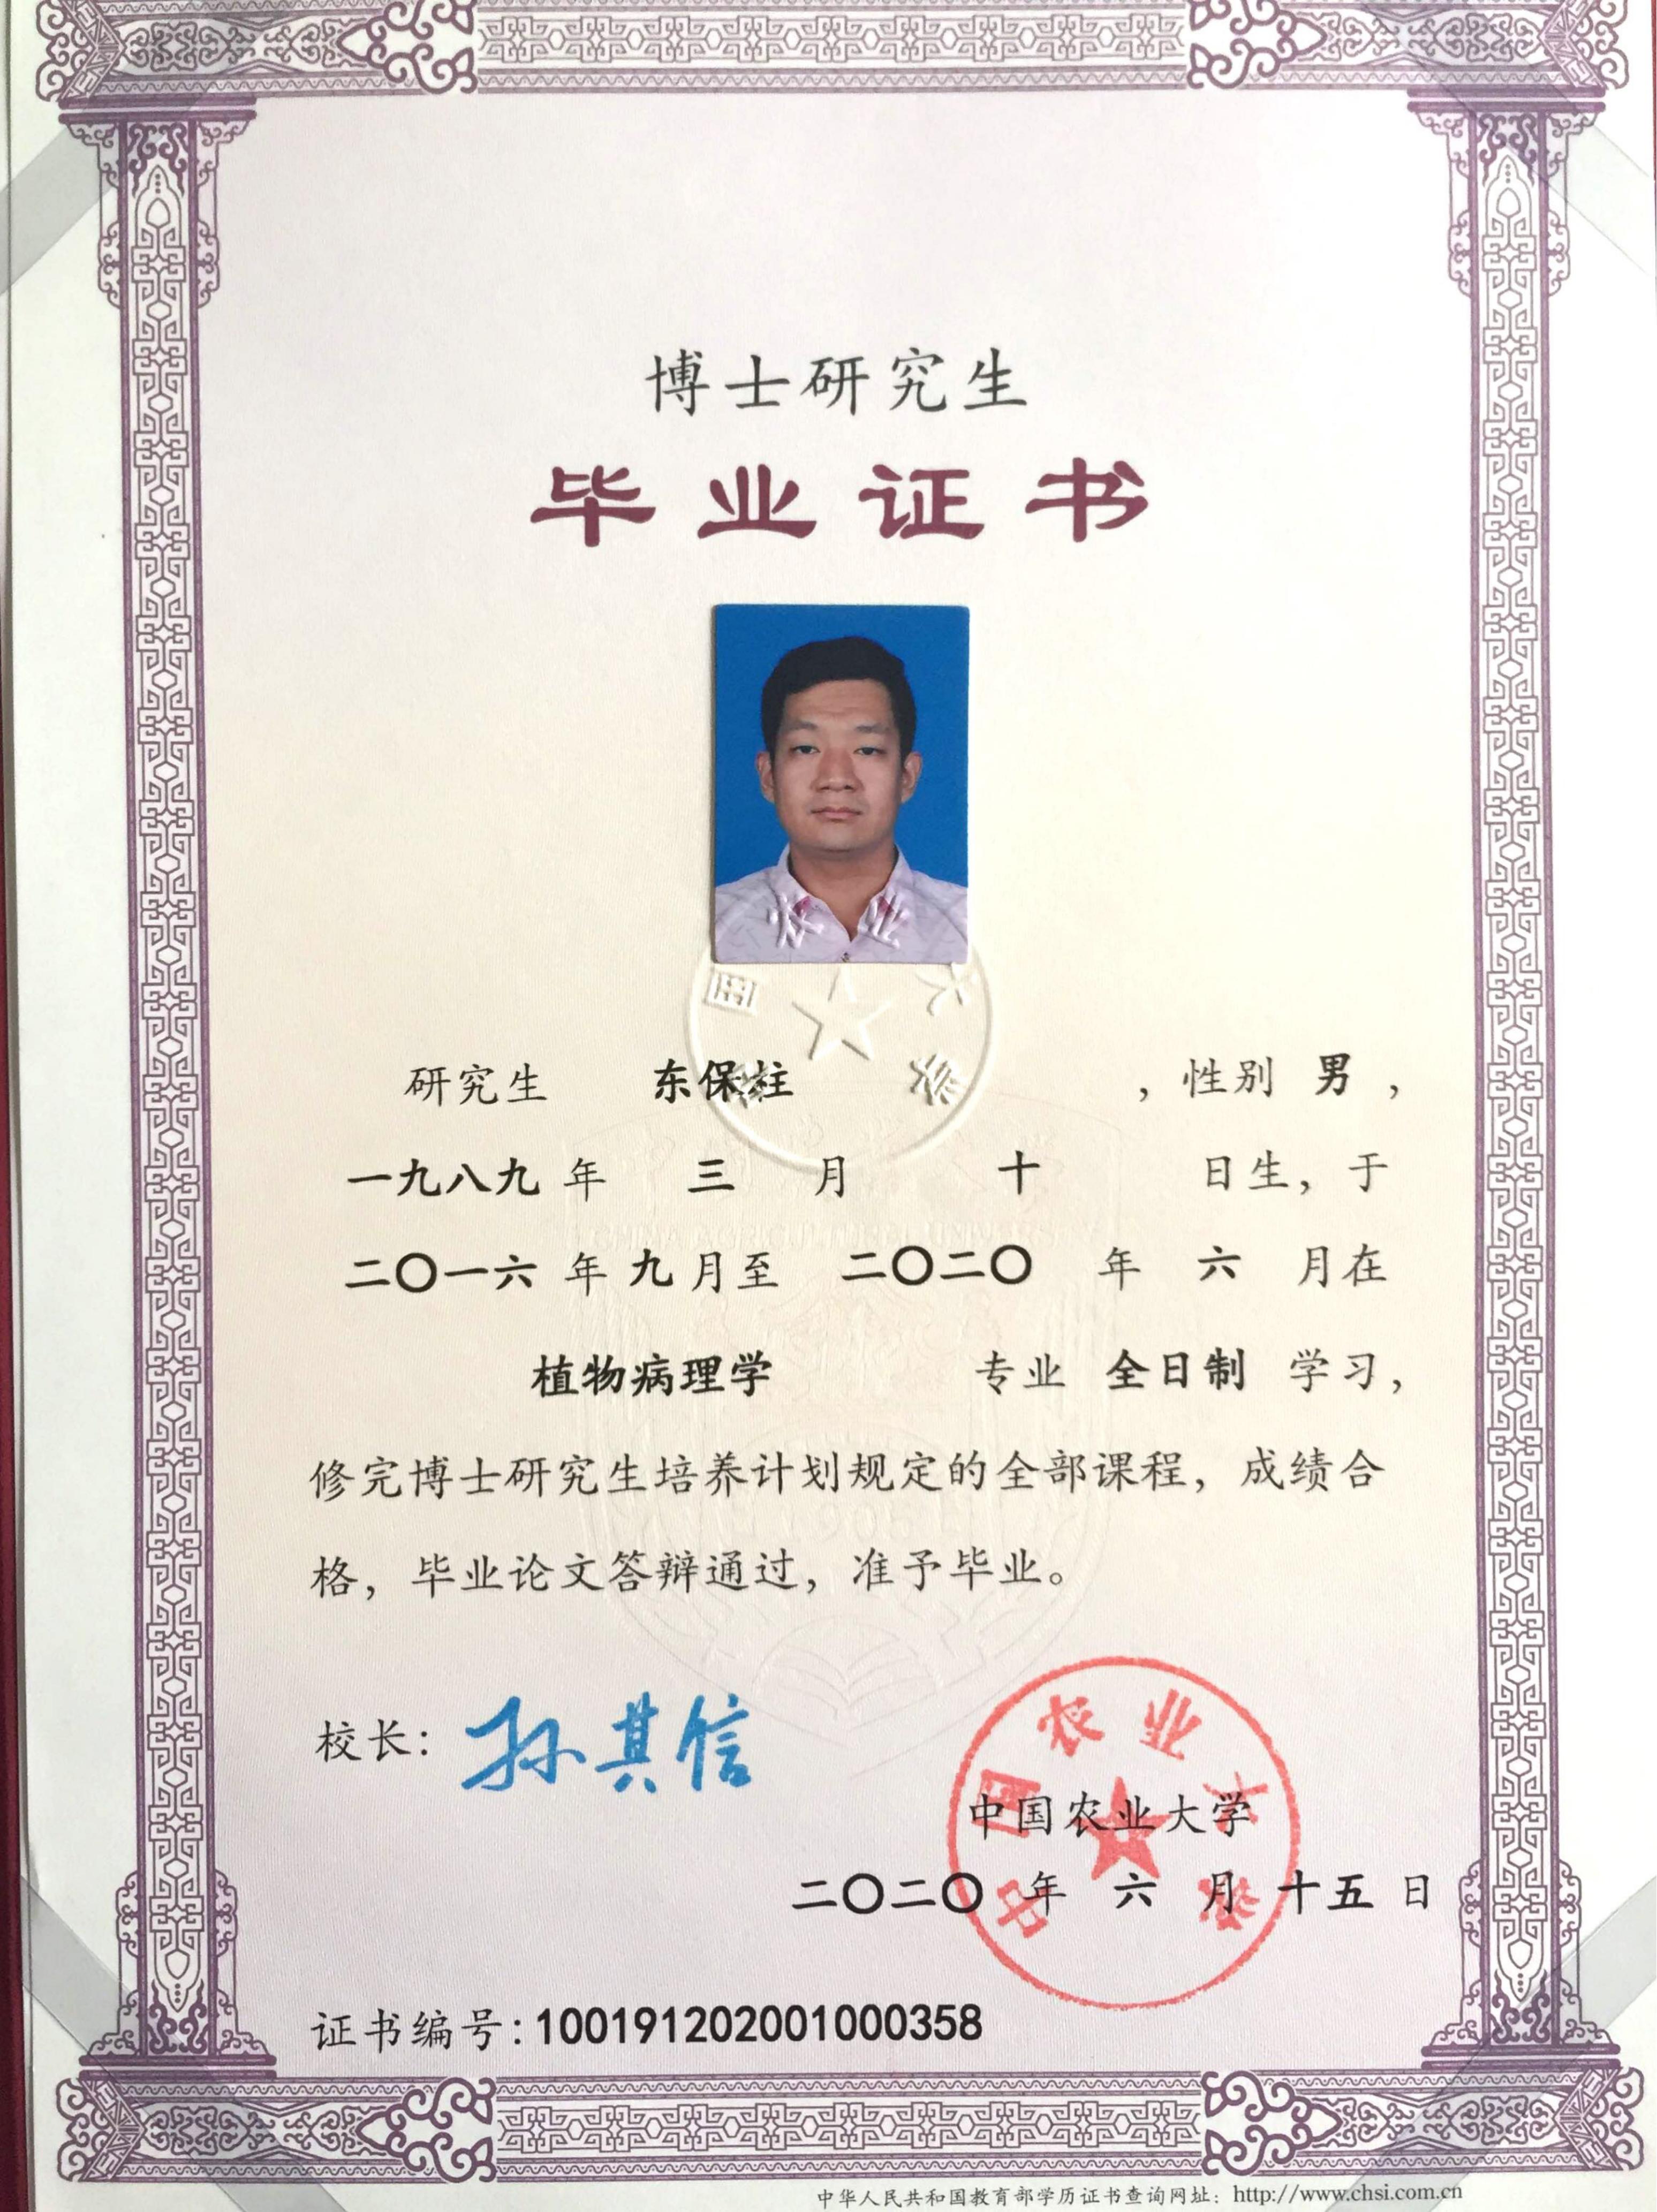 博士研究生
毕业证书
农业
国 大
中 学
研究生 东保柱 ，性别 男，
一九八九 年 三 月 十 日生，于
二〇一六 年 九 月至 二〇二〇 年 六 月在
植物病理学 专业 全日制 学习，
修完博士研究生培养计划规定的全部课程，成绩合
格，毕业论文答辩通过，准予毕业。
CHINA AGRICULTURAL UNIVERSITY
1905
校长：孙其信
中国农业大学
中国农业大学
二〇二〇 年 六 月 十五 日
证书编号：100191202001000358
中华人民共和国教育部学历证书查询网址：http://www.chsi.com.cn